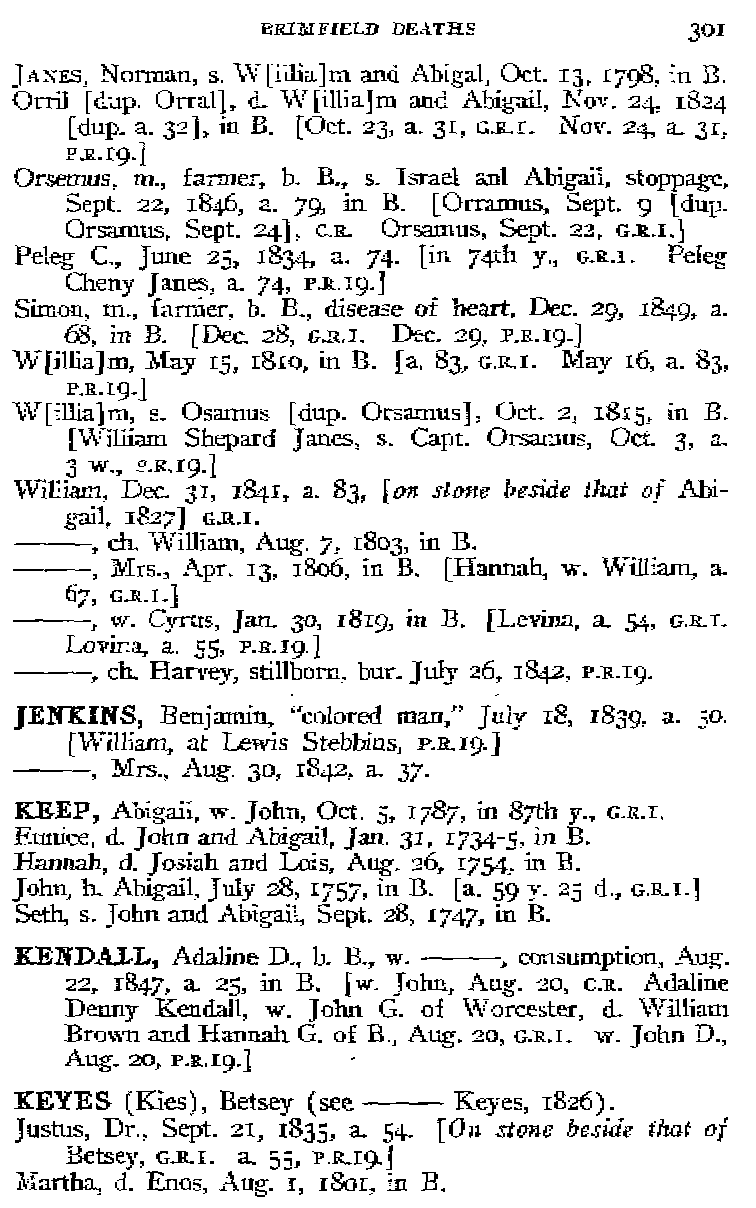 BRIMFIELD DEATHS 301
JANES, Norman, s. W[illia]m and Abigal, Oct. 13, 1798, in B.
Orril [dup. Orral], d. W[illia]m and Abigail, Nov. 24, 1824
[dup. a. 32], in B. [Oct. 23, a. 31, G.R.1. Nov. 24, a. 31,
P.R.19.]
Orsemus, m., farmer, b. B., s. Israel anl Abigail, stoppage,
Sept. 22, 1846, a. 79, in B. [Orramus, Sept. 9 [dup.
Orsamus, Sept. 24], C.R. Orsamus, Sept. 22, G.R.1.]
Peleg C., June 25, 1834, a. 74. [in 74th y., G.R.1. Peleg
Cheny Janes, a. 74, P.R.19.]
Simon, m., farmer, b. B., disease of heart, Dec. 29, 1849, a.
68, in B. [Dec. 28, G.R.1. Dec. 29, P.R.19.]
W[illia]m, May 15, 1810, in B. [a. 83, G.R.1. May 16, a. 83,
P.R.19.]
W[illia]m, s. Osamus [dup. Orsamus], Oct. 2, 1815, in B.
[William Shepard Janes, s. Capt. Orsamus, Oct. 3, a.
3 w., P.R.19.]
William, Dec. 31, 1841, a. 83, [on stone beside that of Abi-
gail, 1827] G.R.1.
———, ch. William, Aug. 7, 1803, in B.
———, Mrs., Apr. 13, 1806, in B. [Hannah, w. William, a.
67, G.R.1.]
———, w. Cyrus, Jan. 30, 1819, in B. [Levina, a. 54, G.R.1.
Lovina, a. 55, P.R.19.]
———, ch. Harvey, stillborn, bur. July 26, 1842, P.R.19.
JENKINS, Benjamin, "colored man," July 18, 1839, a. 50.
[William, at Lewis Stebbins, P.R.19.]
———, Mrs., Aug. 30, 1842, a. 37.
KEEP, Abigail, w. John, Oct. 5, 1787, in 87th y., G.R.1.
Eunice, d. John and Abigail, Jan. 31, 1734-5, in B.
Hannah, d. Josiah and Lois, Aug. 26, 1754, in B.
John, h. Abigail, July 28, 1757, in B. [a. 59 y. 25 d., G.R.1.]
Seth, s. John and Abigail, Sept. 28, 1747, in B.
KENDALL, Adaline D., b. B., w. ———, consumption, Aug.
22, 1847, a. 25, in B. [w. John, Aug. 20, C.R. Adaline
Denny Kendall, w. John G. of Worcester, d. William
Brown and Hannah G. of B., Aug. 20, G.R.1. w. John D.,
Aug. 20, P.R.19.]
KEYES (Kies), Betsey (see ——— Keyes, 1826).
Justus, Dr., Sept. 21, 1835, a. 54. [On stone beside that of
Betsey, G.R.1. a. 55, P.R.19.]
Martha, d. Enos, Aug. 1, 1801, in B.